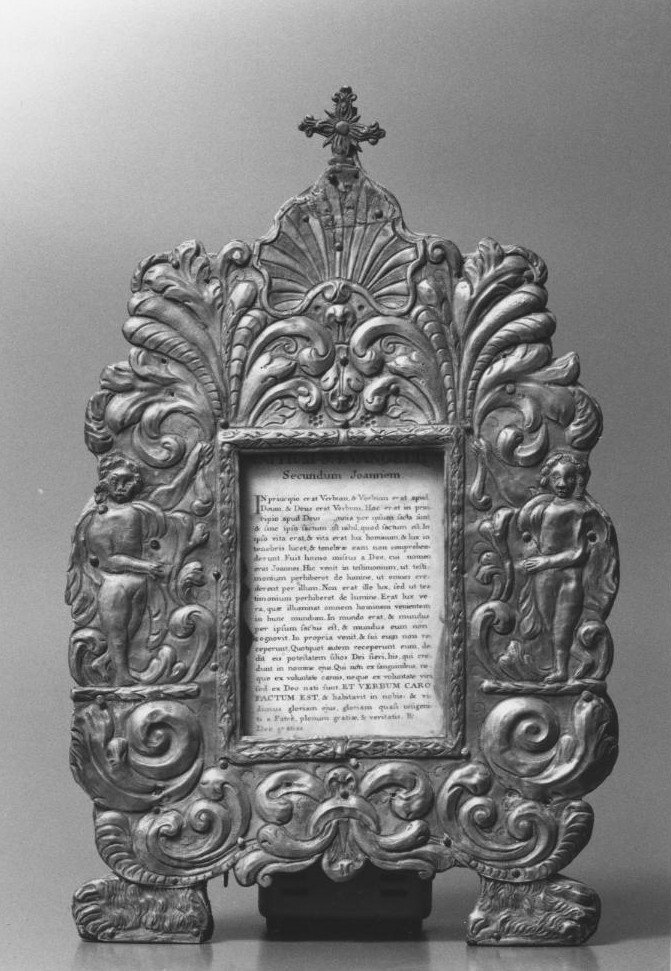 Secundum Joannem.
IN principio erat Verbum, & Verbum erat apud
Deum, & Deus erat Verbum. Hoc erat in prin
cipio apud Deum omnia per ipsum facta sunt
& sine ipso factum est nihil, quod factum est. In
ipso vita erat, & vita erat lux hominum & lux in
tenebris lucet, & tenebræ eam non comprehen
derunt Fuit homo missus a Deo, cui nomen
erat Joannes. Hic venit in testimonium, ut testi
monium perhiberet de lumine, ut omnes cre
derent per illum. Non erat ille lux, sed ut tes
timonium perhiberet de lumine. Erat lux ve
ra, quæ illuminat omnem hominem venientem
in hunc mundum. In mundo erat, & mundus
per ipsum factus est, & mundus eum non
cognovit. In propria venit & sui eum non re
ceperunt. Quotquot autem receperunt eum, de
dit eis potestatem filios Dei fieri, his, qui cre
dunt in nomine ejus. Qui non ex sanguinibus, ne
que ex voluntate carnis, neque ex voluntate viri
sed ex Deo nati sunt ET VERBUM CARO
FACTUM EST, & habitavit in nobis: & vi
dimus gloriam ejus, gloriam quasi unigeni
ti a Patre, plenum gratiæ, & veritatis. R
Deo gratias